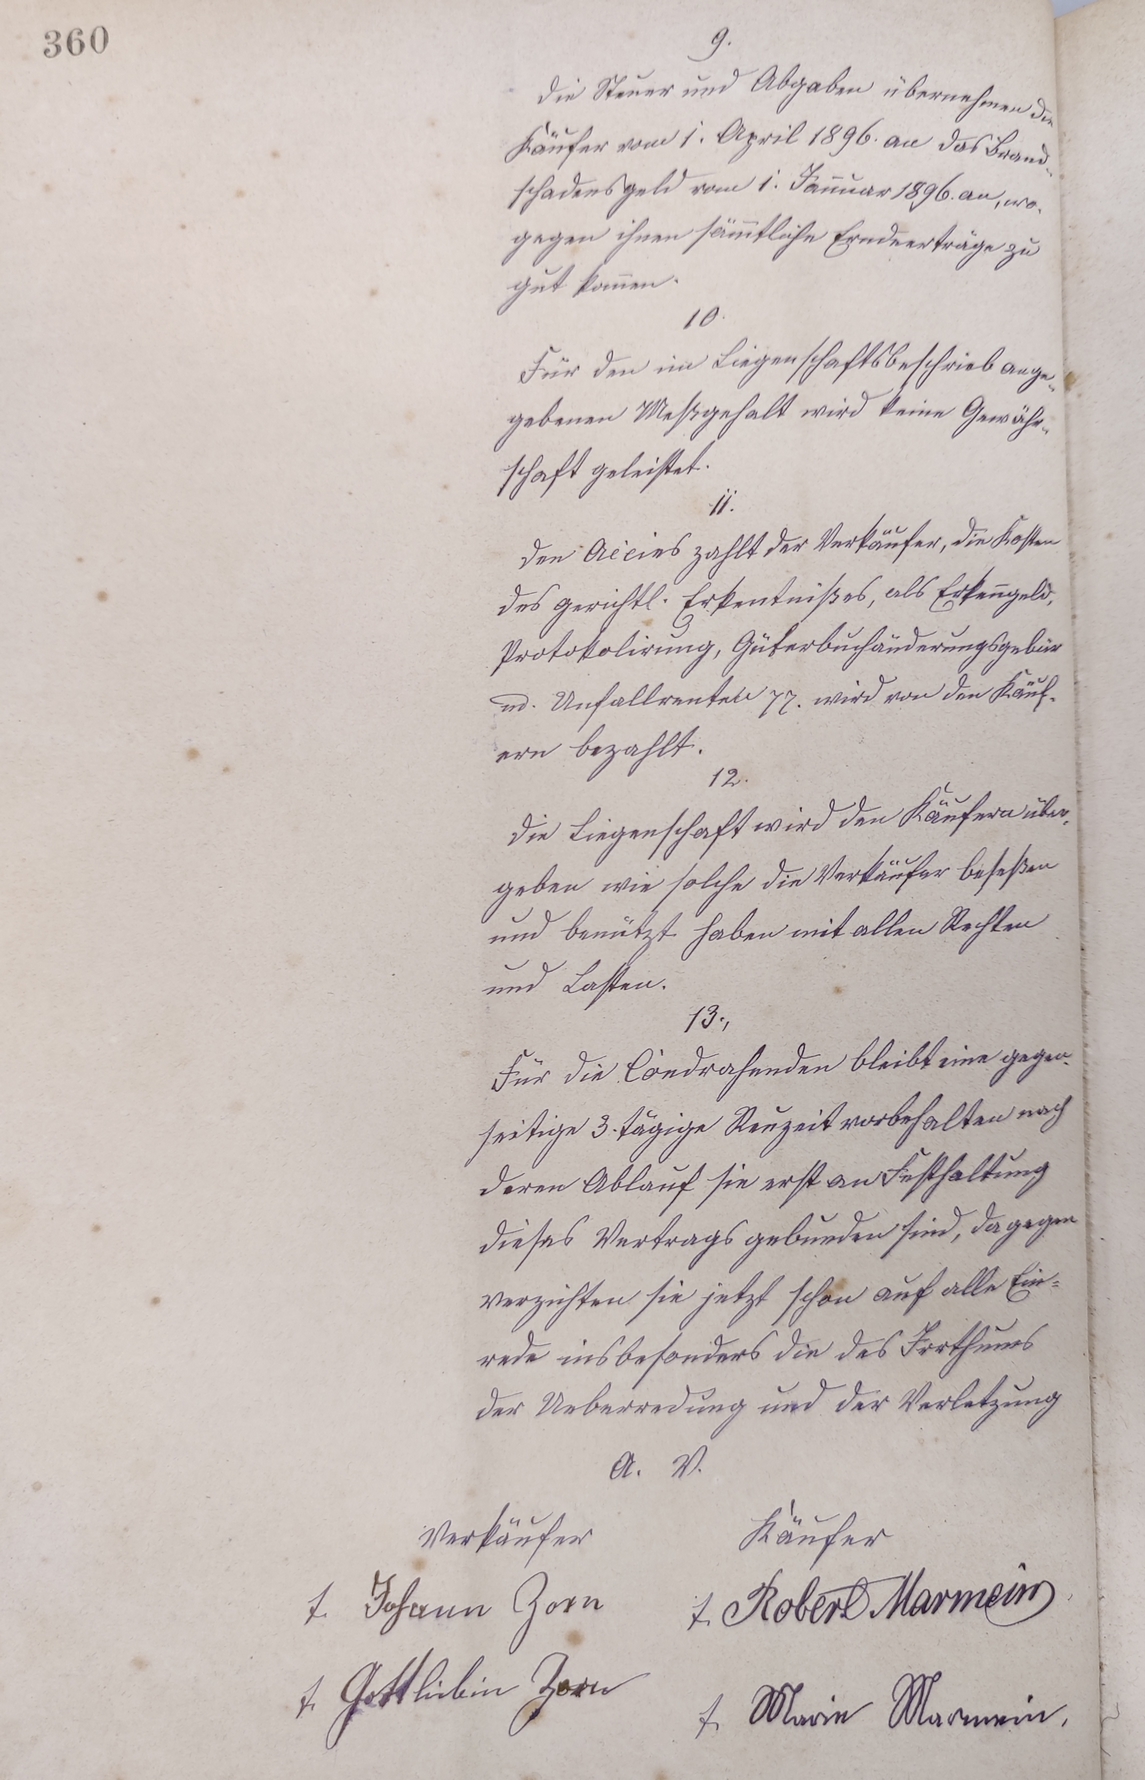 360
9.
Die Steuer und Abgaben übernehmen die
Käufer vom 1. April 1896. an das Brand-
schadensgeld vom 1. Januar 1896. an, wo-
gegen ihnen sämtliche Erndeerträge zu
gut komen.
10.
Für den im Liegenschaftsbeschrieb ange-
gebenen Meßgehalt wird keine Gewähr-
schaft geleistet.
11.
Den Accies zahlt der Verkäufer, die Kosten
des gerichtl. Erkentnißes, als Erkengeld,
Protokolirung, Güterbuchänderungsgebür
u. Unfallrente wird von den Käuf-
ern bezahlt.
12.
Die Liegenschaft wird den Käufern über-
geben wie solche die Verkäufer beseßen
und benützt haben mit allen Rechten
und Lasten.
13.,
Für die Condrahenden bleibt eine gegen-
seitige 3. tägige Reuzeit vorbehalten nach
deren Ablauf sie erst an Festhaltung
dieses Vertrags gebunden sind, dagegen
verzichten sie jetzt schon auf alle Ein-
rede insbesonders die des Irrthums
der Ueberredung und der Verletzung
A. V.
Verkäufer Käufer
t. Johann Zorn t. Robert Marmein
t. Gottliebin Zorn t. Marie Marmein.